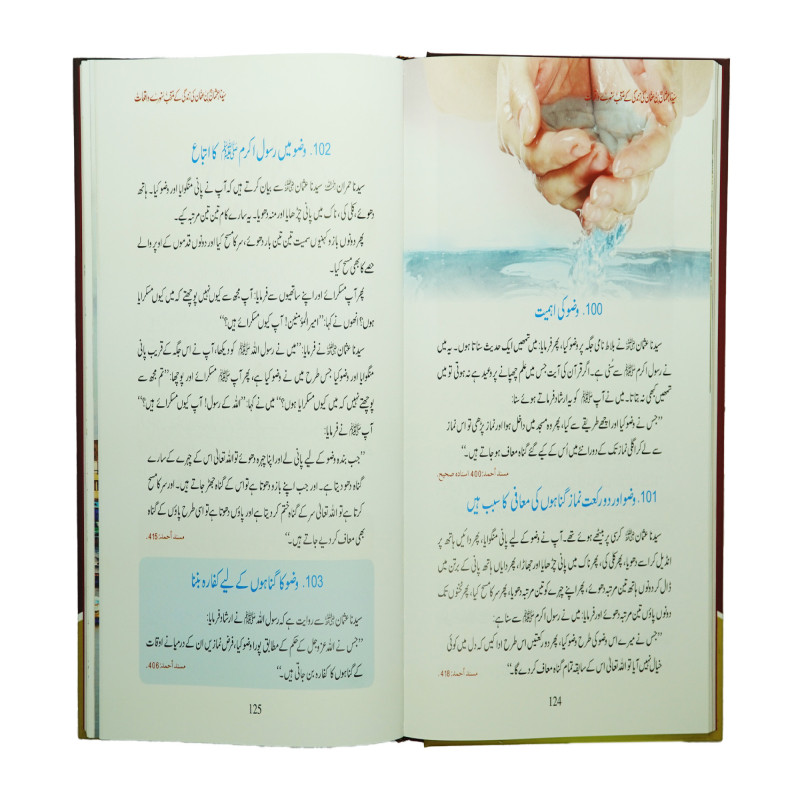 سیدنا عثمان بن عفان کی زندگی کے منتخب سنہرے واقعات
100. وضو کی اہمیت
سیدنا عثمان رضی اللہ عنہ نے بلاط نامی جگہ پر وضو کیا، پھر فرمایا: میں تمھیں ایک حدیث سناتا ہوں۔ یہ میں
نے رسول اکرم ﷺ سے سُنی ہے۔ اگر قرآن کی آیت جس میں علم چھپانے پر وعید ہے نہ ہوتی تو میں
تمھیں کبھی نہ بتاتا۔ میں نے آپ ﷺ کو یہ ارشاد فرماتے ہوئے سنا:
”جس نے وضو کیا اور اچھے طریقے سے کیا، پھر وہ مسجد میں داخل ہوا اور نماز پڑھی تو اس نماز
سے لے کر اگلی نماز تک کے دورانیے میں اُس کے کیے گئے گناہ معاف ہو جاتے ہیں۔“
مسند أحمد: 400 اسناده صحیح.
101. وضو اور دو رکعت نماز گناہوں کی معافی کا سبب ہیں
سیدنا عثمان رضی اللہ عنہ کرسی پر بیٹھے ہوئے تھے۔ آپ نے وضو کے لیے پانی منگوایا، پھر دائیں ہاتھ پر
انڈیل کر اسے دھویا، پھر کلی کی، پھر ناک میں پانی چڑھایا اور جھاڑا، پھر دایاں ہاتھ پانی کے برتن میں
ڈال کر دونوں ہاتھ تین مرتبہ دھوئے، پھر اپنے چہرے کو تین مرتبہ دھویا، پھر سر کا مسح کیا، پھر ٹخنوں تک
دونوں پاؤں تین مرتبہ دھوئے اور فرمایا: میں نے رسول اکرم ﷺ سے سنا ہے:
”جس نے میرے اس وضو کی طرح وضو کیا، پھر دو رکعتیں اس طرح ادا کیں کہ دل میں کوئی
خیال نہیں آیا تو اللہ تعالیٰ اس کے سابقہ تمام گناہ معاف کر دے گا۔“ مسند أحمد: 418.
124
سیدنا عثمان بن عفان کی زندگی کے منتخب سنہرے واقعات
102. وضو میں رسول اکرم ﷺ کا اتباع
سیدنا حمران رحمہ اللہ سیدنا عثمان رضی اللہ عنہ سے بیان کرتے ہیں کہ آپ نے پانی منگوایا اور وضو کیا۔ ہاتھ
دھوئے، کلی کی، ناک میں پانی چڑھایا اور منہ دھویا۔ یہ سارے کام تین تین مرتبہ کیے۔
پھر دونوں بازو کہنیوں سمیت تین تین بار دھوئے، سر کا مسح کیا اور دونوں قدموں کے اوپر والے
حصے کا بھی مسح کیا۔
پھر آپ مسکرائے اور اپنے ساتھیوں سے فرمایا: آپ مجھ سے کیوں نہیں پوچھتے کہ میں کیوں مسکرایا
ہوں؟ انھوں نے کہا: ”امیر المؤمنین! آپ کیوں مسکرائے ہیں؟“
سیدنا عثمان رضی اللہ عنہ نے فرمایا: ”میں نے رسول اللہ ﷺ کو دیکھا، آپ نے اس جگہ کے قریب پانی
منگوایا اور وضو کیا جس طرح میں نے وضو کیا ہے، پھر آپ ﷺ مسکرائے اور پوچھا: ”تم مجھ سے
پوچھتے نہیں کہ میں کیوں مسکرایا ہوں؟“ میں نے کہا: ”اللہ کے رسول! آپ کیوں مسکرائے ہیں؟“
آپ ﷺ نے فرمایا:
”جب بندہ وضو کے لیے پانی لے اور اپنا چہرہ دھوئے تو اللہ تعالیٰ اس کے چہرے کے سارے
گناہ دھو دیتا ہے۔ اور جب اپنے بازو دھوتا ہے تو اس کے گناہ جھڑ جاتے ہیں۔ اور سر کا مسح
کرتا ہے تو اللہ تعالیٰ سر کے گناہ ختم کر دیتا ہے اور پاؤں دھوتا ہے تو اسی طرح پاؤں کے گناہ
بھی معاف کر دیے جاتے ہیں۔“ مسند أحمد: 415.
103. وضو کا گناہوں کے لیے کفارہ بننا
سیدنا عثمان رضی اللہ عنہ سے روایت ہے کہ رسول اللہ ﷺ نے ارشاد فرمایا:
”جس نے اللہ عزوجل کے حکم کے مطابق پورا وضو کیا، فرض نمازیں ان کے درمیانے اوقات
کے گناہوں کا کفارہ بن جاتی ہیں۔“ مسند أحمد: 406.
125